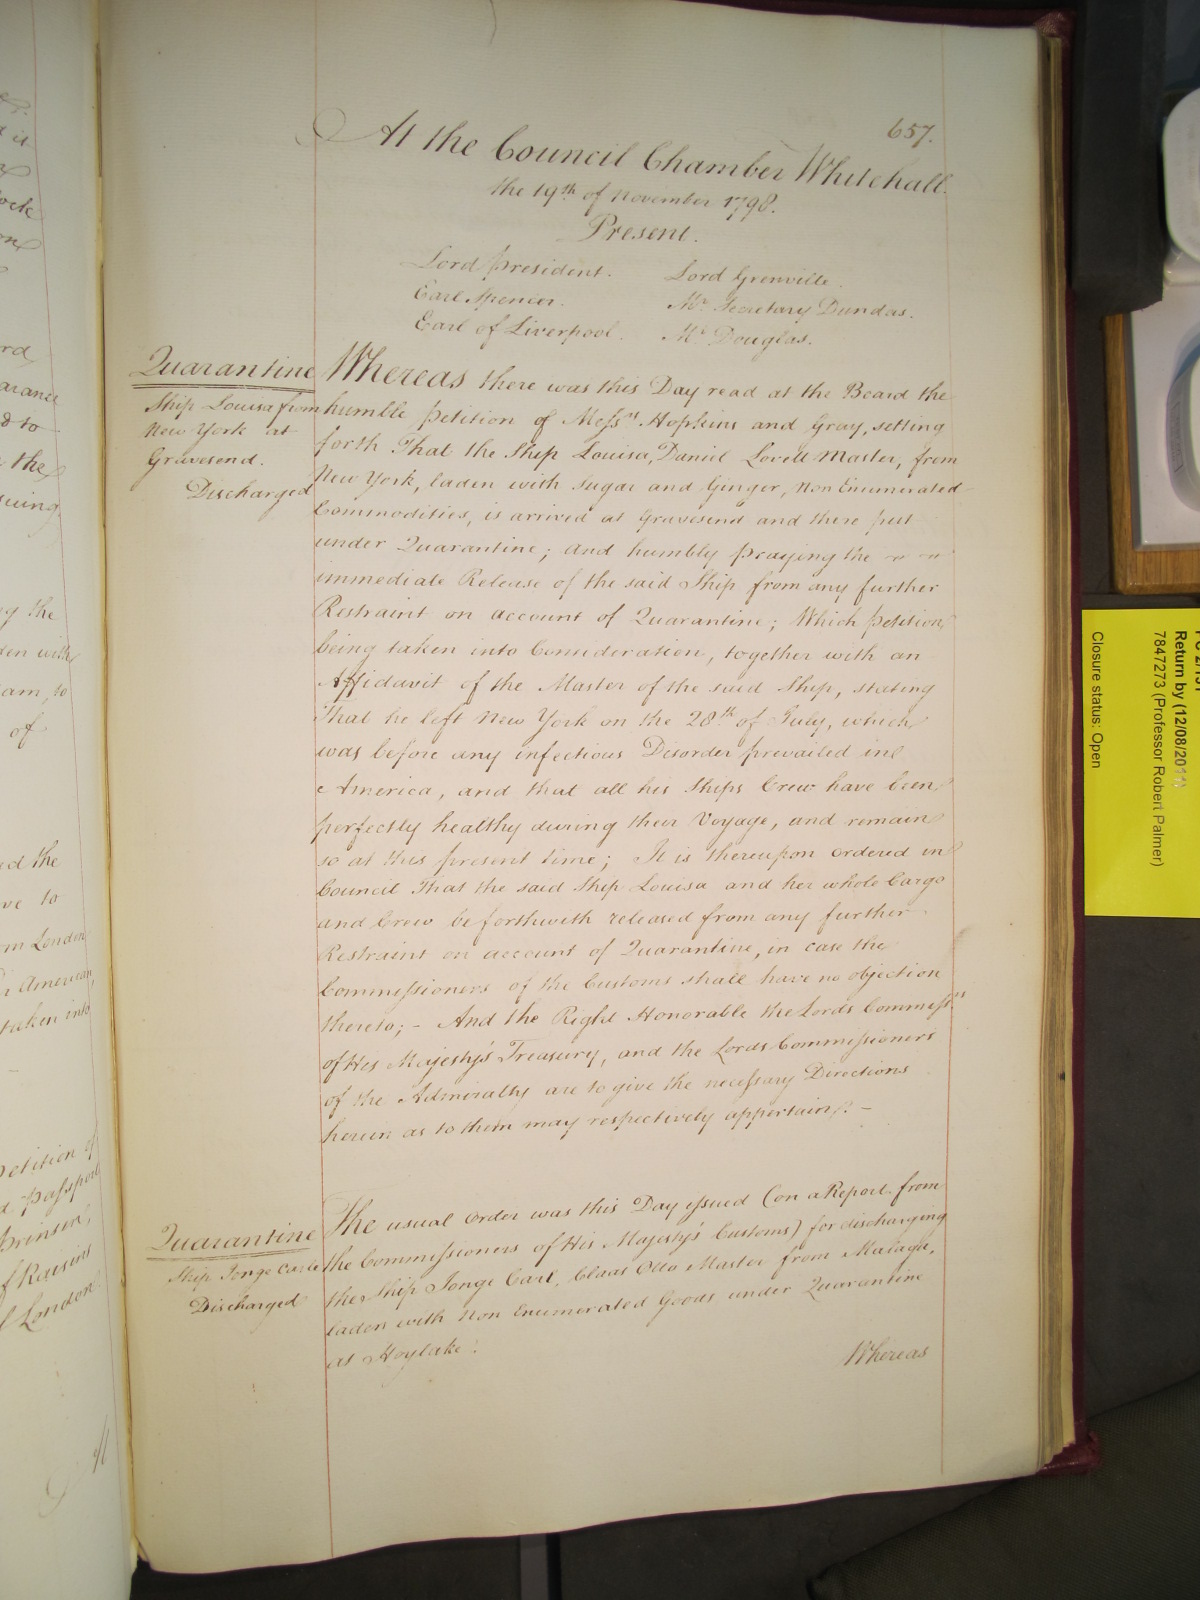 657.
At the Council Chamber Whitehall.
the 19th of November 1798.
Present.
Lord President. Lord Grenville.
Earl Spencer. Mr. Secretary Dundas.
Earl of Liverpool. Mr. Douglas.
Quarantine
Ship Louisa from
New York at
Gravesend.
Discharged
Whereas there was this Day read at the Board the
humble Petition of Messrs Hopkins and Gray, setting
forth That the Ship Louisa, Daniel Lovell Master, from
New York, laden with Sugar and Ginger, Non Enumerated
Commodities, is arrived at Gravesend and there put
under Quarantine; And humbly praying the
immediate Release of the said Ship from any further
Restraint on account of Quarantine; Which Petition
being taken into Consideration, together with an
Affidavit of the Master of the said Ship, stating
That he left New York on the 28th of July, which
was before any infectious Disorder prevailed in
America, and that all his Ships Crew have been
perfectly healthy during their Voyage, and remain
so at this present time; It is thereupon ordered in
Council That the said Ship Louisa and her whole Cargo
and Crew be forthwith released from any further
Restraint on account of Quarantine, in case the
Commissioners of the Customs shall have no objection
thereto; - And the Right Honorable the Lords Commissrs
of His Majesty's Treasury, and the Lords Commissioners
of the Admiralty are to give the necessary Directions
herein as to them may respectively appertain. -
Quarantine
Ship Jonge Carle
Discharged
The usual Order was this Day issued (on a Report from
the Commissioners of His Majesty's Customs) for discharging
the Ship Jonge Carl, Claas Otto Master from Malaga,
laden with Non Enumerated Goods under Quarantine
at Hoylake.
Whereas
Return by (12/08/2011)
7847273 (Professor Robert Palmer)
Closure status: Open